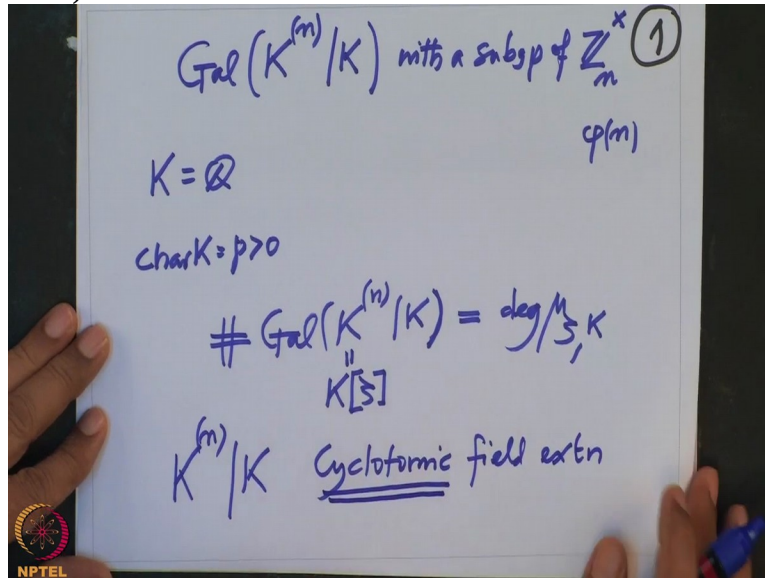 Gal(K^(n)/K) with a subgp of ℤ_n^× ①
φ(n)
K = ℚ
char K = p>0
# Gal(K^(n)/K) = deg μ_ζ,K
||
K[ζ]
K^(n)/K Cyclotomic field extn
NPTEL